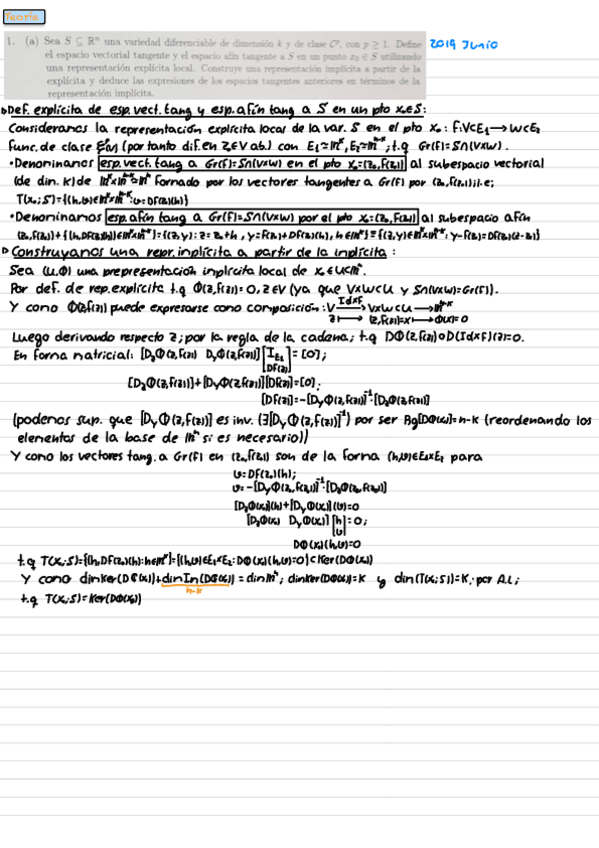 Teoría
1. (a) Sea S ⊆ ℝⁿ una variedad diferenciable de dimensión k y de clase Cᵖ, con p ≥ 1. Define
el espacio vectorial tangente y el espacio afín tangente a S en un punto x₀ ∈ S utilizando
una representación explícita local. Construye una representación implícita a partir de la
explícita y deduce las expresiones de los espacios tangentes anteriores en términos de la
representación implícita.
2019 Junio
Def. explícita de esp. vect. tang y esp. afín tang a S en un pto x₀∈S:
Consideramos la representación explícita local de la var. S en el pto x₀: F:V⊂E₁→W⊂E₂
Func. de clase (por tanto dif. en z₀∈V ab.) con E₁≃ℝᵏ, E₂≃ℝⁿ⁻ᵏ; t.q Gr(F)=S∩(V×W).
•Denominamos esp. vect. tang a Gr(F)=S∩(V×W) en el pto x₀=(z₀,F(z₀)) al subespacio vectorial
(de dim. k) de ℝᵏ×ℝⁿ⁻ᵏ≃ℝⁿ formado por los vectores tangentes a Gr(F) por (z₀,F(z₀)); i.e;
T(x₀;S)={(h,v)∈ℝᵏ×ℝⁿ⁻ᵏ: v=DF(z₀)(h)}
•Denominamos esp. afín tang a Gr(F)=S∩(V×W) por el pto x₀=(z₀,F(z₀)) al subespacio afín
(z₀,F(z₀))+{(h,DF(z₀)(h))∈ℝᵏ×ℝⁿ⁻ᵏ}={(z,y): z=z₀+h, y=F(z₀)+DF(z₀)(h), h∈ℝᵏ}={(z,y)∈ℝᵏ×ℝⁿ⁻ᵏ: y-F(z₀)=DF(z₀)(z-z₀)}
Construyamos una repr. implícita a partir de la implícita:
Sea (U,Φ) una prepresentación implícita local de x₀∈U⊂ℝⁿ.
Por def. de rep. explícita t.q Φ(z,F(z))=0, z∈V (ya que V×W⊂U y S∩(V×W)=Gr(F)).
Y como Φ(z,f(z)) puede expresarse como composición: V Id×F→ V×W⊂U → ℝⁿ⁻ᵏ
z ↦ (z,F(z))=x ↦ Φ(x)=0
Luego derivando respecto z; por la regla de la cadena; t.q DΦ(z,F(z))∘D(Id×F)(z)=0.
En forma matricial: [D₂Φ(z,F(z)) DᵧΦ(z,F(z))] [I_E₁ DF(z)] = [0];
[D₂Φ(z,F(z))]+[DᵧΦ(z,F(z))][DF(z)]=[0];
[DF(z)]=-[DᵧΦ(z,F(z))]⁻¹[D₂Φ(z,F(z))]
(podemos sup. que [DᵧΦ(z,f(z))] es inv. (∃[DᵧΦ(z,f(z))]⁻¹) por ser Rg[DΦ(x)]=n-k (reordenando los
elementos de la base de ℝⁿ si es necesario))
Y como los vectores tang. a Gr(F) en (z₀,f(z₀)) son de la forma (h,v)∈E₁×E₂ para
v=DF(z₀)(h);
v=-[DᵧΦ(z₀,F(z₀))]⁻¹·[D₂Φ(z₀,F(z₀))]
[D₂Φ(x₀)](h)+[DᵧΦ(x₀)](v)=0
[D₂Φ(x₀) DᵧΦ(x₀)] [h v] =0;
DΦ(x₀)(h,v)=0
t.q T(x₀;S)={(h,DF(z₀)(h): h∈ℝᵏ}={(h,v)∈E₁×E₂: DΦ(x₀)(h,v)=0}⊂Ker(DΦ(x₀))
Y como dimker(DΦ(x₀))+dimIm(DΦ(x₀))=dimℝⁿ; dimker(DΦ(x₀))=k y dim(T(x₀;S))=k; por A.L;
n-k
t.q T(x₀;S)=Ker(DΦ(x₀))